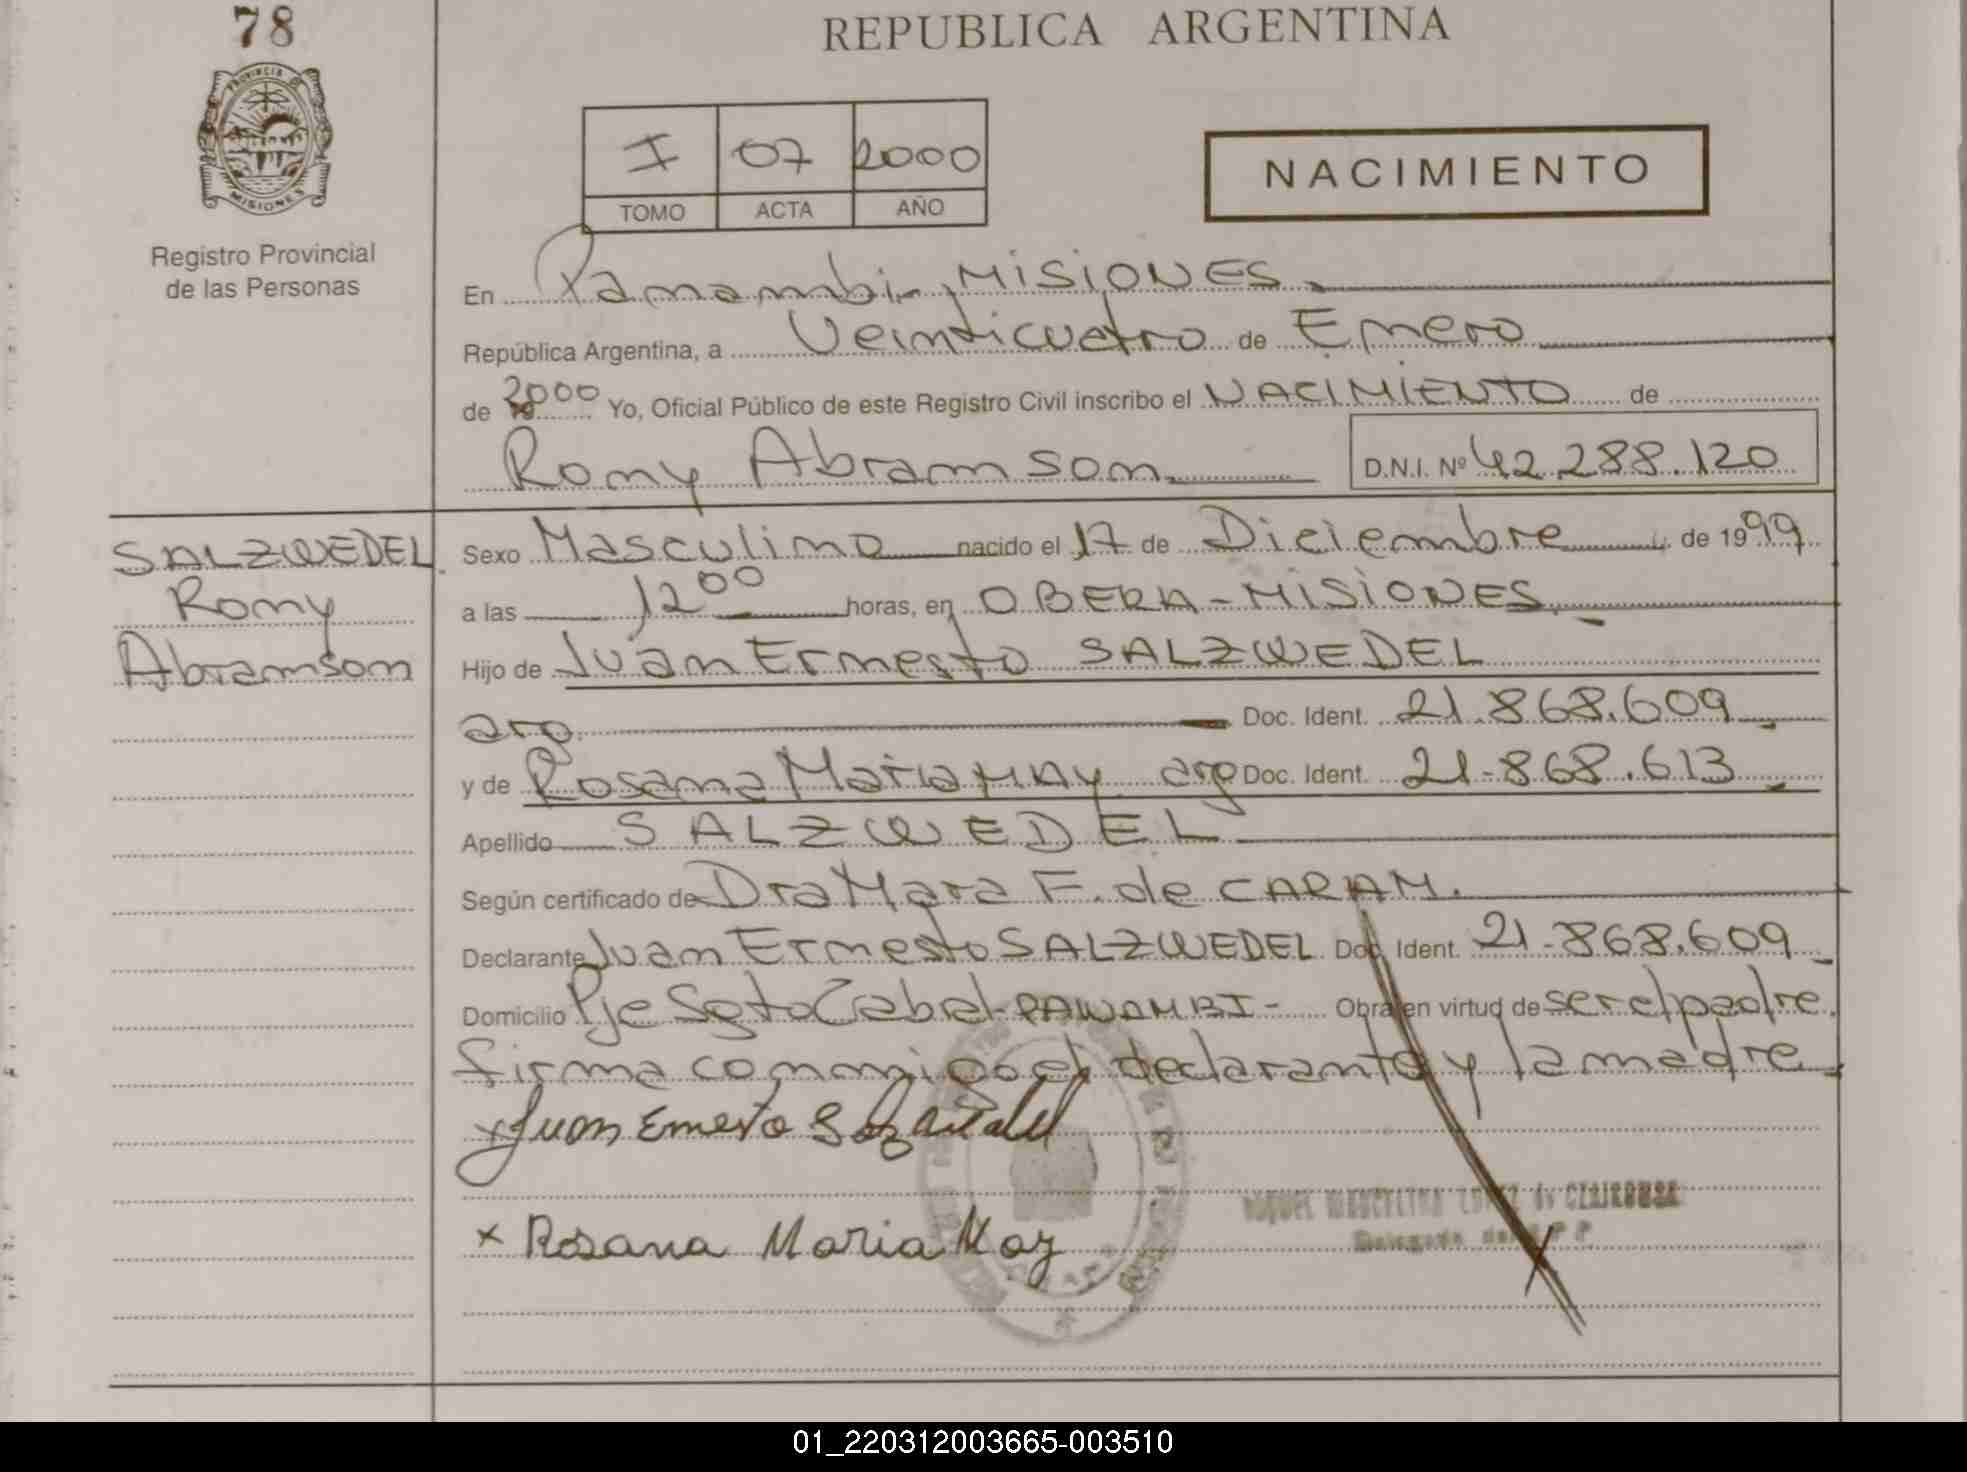 78
REPUBLICA ARGENTINA
PROVINCIA DE
MISIONES
Registro Provincial
de las Personas
I 07 2000
TOMO ACTA AÑO
NACIMIENTO
En Panambi - MISIONES
República Argentina, a Veinticuatro de Enero
de 2000 Yo, Oficial Público de este Registro Civil inscribo el NACIMIENTO de
Romy Abramson D.N.I. Nº 42.288.120
SALZWEDEL
Romy
Abramson
Sexo Masculino nacido el 17 de Diciembre de 1999
a las 12 00 horas, en OBERA - MISIONES
Hijo de Juan Ernesto SALZWEDEL
arg. Doc. Ident. 21.868.609
y de Rosana Maria MAY arg Doc. Ident. 21-868.613
Apellido SALZWEDEL
Según certificado de Dra Mara F. de CARAM.
Declarante Juan Ernesto SALZWEDEL Doc. Ident. 21-868.609
Domicilio Pje Sgto Cabral - PANAMBI - Obra en virtud de ser el padre.
firma conmigo el declarante y la madre
x Juan Ernesto
x Rosana Maria May
01_220312003665-003510